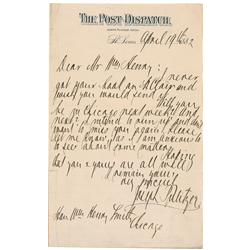 THE POST-DISPATCH,
St. Louis, April 19th 1882
Dear Mr. Wm Henry:
I never
got your
and
must you would send
Will you
be in Chicago next week and
next? I intend to run up and don't
want to miss you again. Please
let me know, as I am anxious to
to see about some matters.
Hoping
that you & yours are all well, I
remain yours
sincerely
Joseph Pulitzer
Hon. Wm Henry Smith,
Chicago